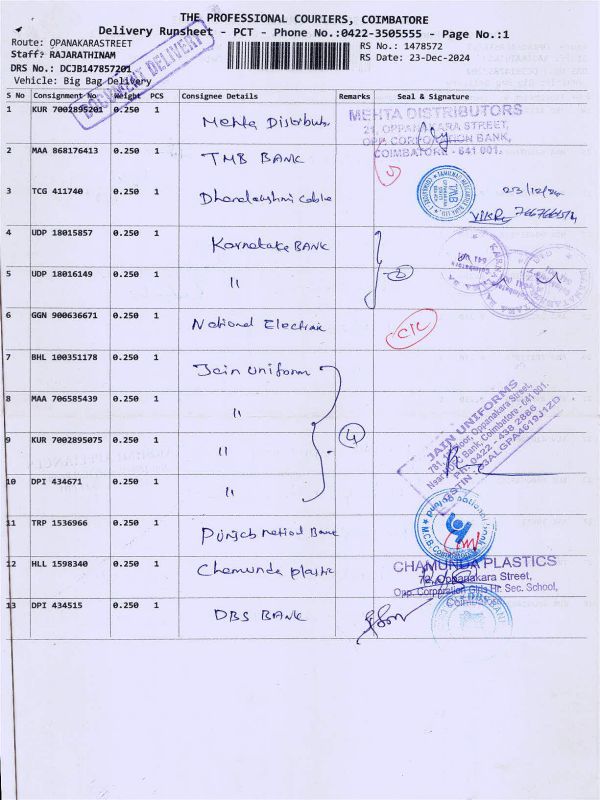 THE PROFESSIONAL COURIERS, COIMBATORE
Delivery Runsheet - PCT - Phone No.:0422-3505555 - Page No.:1
Route: OPANAKARASTREET
Staff: RAJARATHINAM
DRS No.: DCJB147857201
Vehicle: Big Bag Delivery
RS No.: 1478572
RS Date: 23-Dec-2024
DELIVERY
S No Consignment No Weight PCS Consignee Details Remarks Seal & Signature
1 KUR 7002895201 0.250 1 Mehta Distribut.
MEHTA DISTRIBUTORS
21, OPPANAKARA STREET,
OPP. CORPORATION BANK,
COIMBATORE - 641 001.
2 MAA 868176413 0.250 1 TMB BANK
TMB
3 TCG 411740 0.250 1 Dhanalakshmi Cable
23/12/24
4 UDP 18015857 0.250 1 Karnataka BANK
5 UDP 18016149 0.250 1 "
2
6 GGN 900636671 0.250 1 National Electric
7 BHL 100351178 0.250 1 Jain Uniform
8 MAA 706585439 0.250 1 "
9 KUR 7002895075 0.250 1 "
4
JAIN UNIFORMS
10 DPI 434671 0.250 1 "
11 TRP 1536966 0.250 1 Punjab nation Bank
punjab national bank
12 HLL 1598340 0.250 1 Chamunda plastic
CHAMUNDA PLASTICS
72, Oppanakara Street,
Opp. Corporation Girls Hr. Sec. School,
13 DPI 434515 0.250 1 DBS BANK